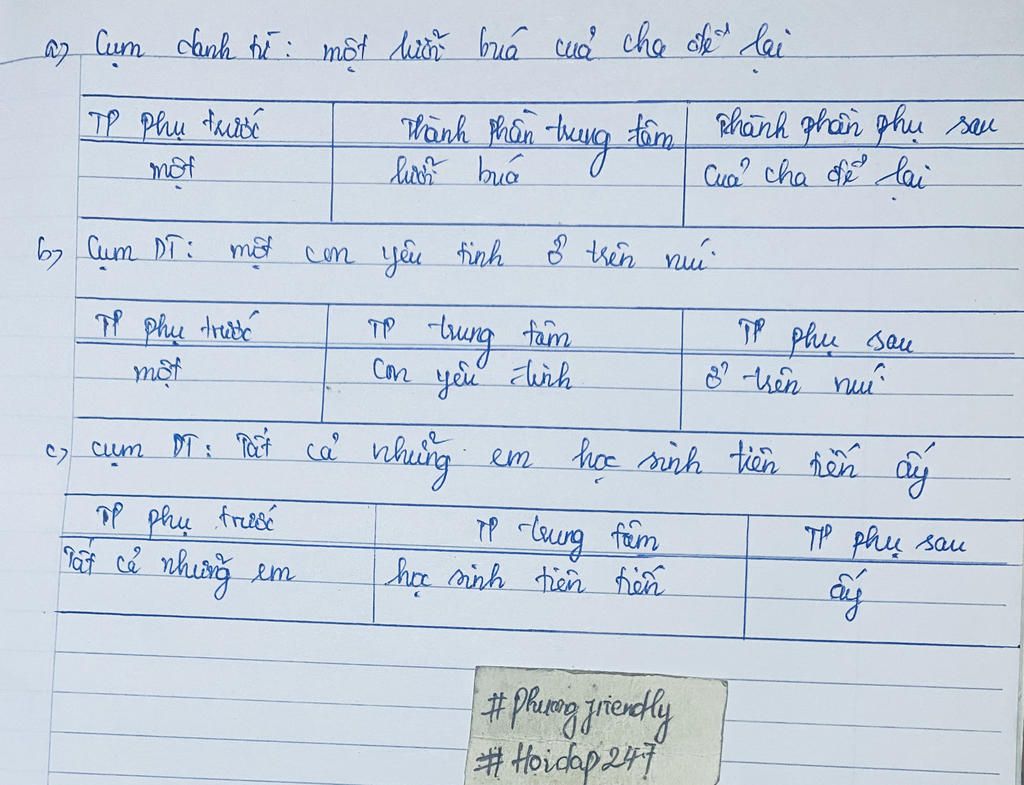 a) Cụm danh từ: một lưỡi búa của cha để lại
TP phụ trước Thành phần trung tâm Thành phần phụ sau
một lưỡi búa của cha để lại
b) Cụm DT: một con yêu tinh ở trên núi.
TP phụ trước TP trung tâm TP phụ sau
một con yêu tinh ở trên núi.
c) cụm DT: Tất cả những em học sinh tiên tiến ấy
TP phụ trước TP trung tâm TP phụ sau
Tất cả những em học sinh tiên tiến ấy
#Phuongfriendly
#Hoidap247